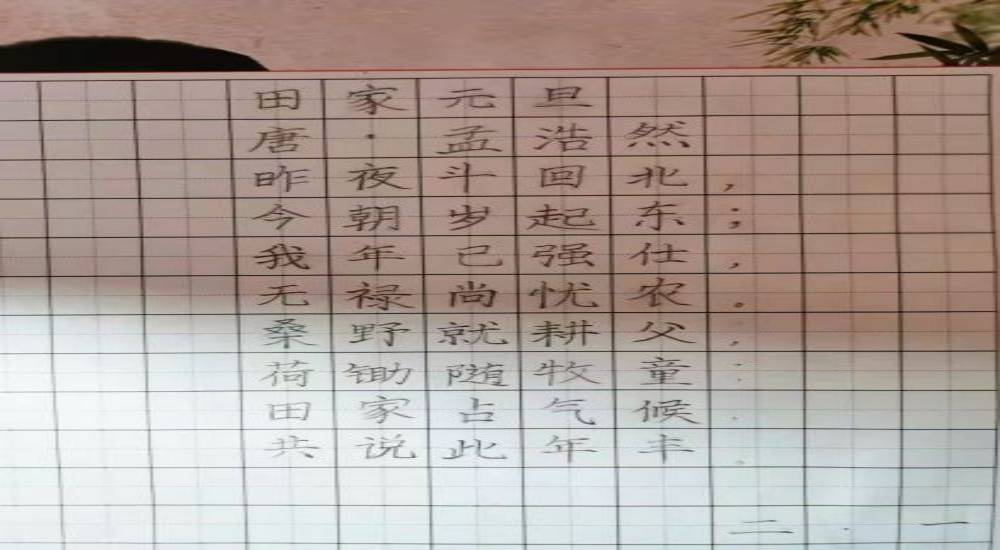 田家元旦
唐·孟浩然
昨夜斗回北，
今朝岁起东；
我年已强仕，
无禄尚忧农。
桑野就耕父，
荷锄随牧童；
田家占气候，
共说此年丰。
二·一